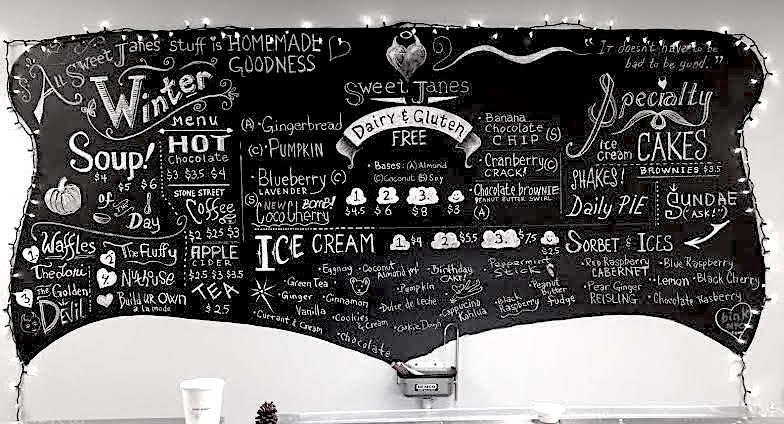 All Sweet Janes stuff is HOMEMADE
GOODNESS
Winter
Menu
Soup!
$4 $5 $6
of the Day
HOT
Chocolate
$3 $3.5 $4
STONE STREET
Coffee
$2 $2.5 $3
APPLE
CIDER
$2.5 $3 $3.5
TEA
$2.5
Waffles
1 The Lori
3 The Golden
DEVIL
2 The Fluffy
4 Nuthouse
Build ur Own
a la mode
Sweet Janes
Dairy & Gluten
FREE
(A) • Gingerbread
(C) • PUMPKIN
• Blueberry (C)
LAVENDER
(S) NEW! BOMB!
CocoCherry
• Bases: (A) Almond
(C) Coconut (S) Soy
1 2 3
$4.5 $6 $8 $3
• Banana
Chocolate
CHIP (S)
• Cranberry (C)
CRACK!
• Chocolate brownie
PEANUT BUTTER SWIRL
(A)
ICE CREAM 1 $4 2 $5.5 3 $7.5 $2.5
• Eggnog
• Coconut
Almond
• Birthday
CAKE
• Peppermint
Stick
• Green Tea
• Pumpkin
• Peanut
butter
Fudge
• Ginger
• Cinnamon
• Dulce de Leche
• Cappucino
Kahlua
• Black
Raspberry
Vanilla
• Currant & Cream
• Cookies
& Cream
• Cookie Dough
• Chocolate
"It doesn't have to be
bad to be good."
Specialty
Ice
cream CAKES
BROWNIES $3.5
SHAKES!
Daily PIE
SUNDAE
("ASK!")
SORBET & ICES
• Red Raspberry
CABERNET
• Blue Raspberry
• Lemon
• Black Cherry
• Pear Ginger
REISLING
• Chocolate Rasberry